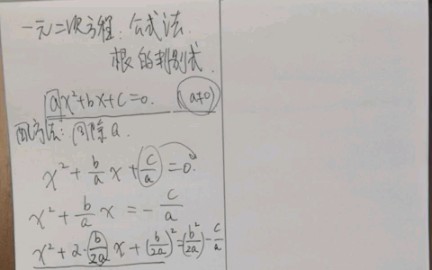 一元二次方程:公式法
根的判别式
ax²+bx+c=0. (a≠0)
配方法: 同除a.
x²+b/a x+c/a=0.
x²+b/a x=-c/a
x²+2·b/2a x+(b/2a)²=(b²/2a)-c/a